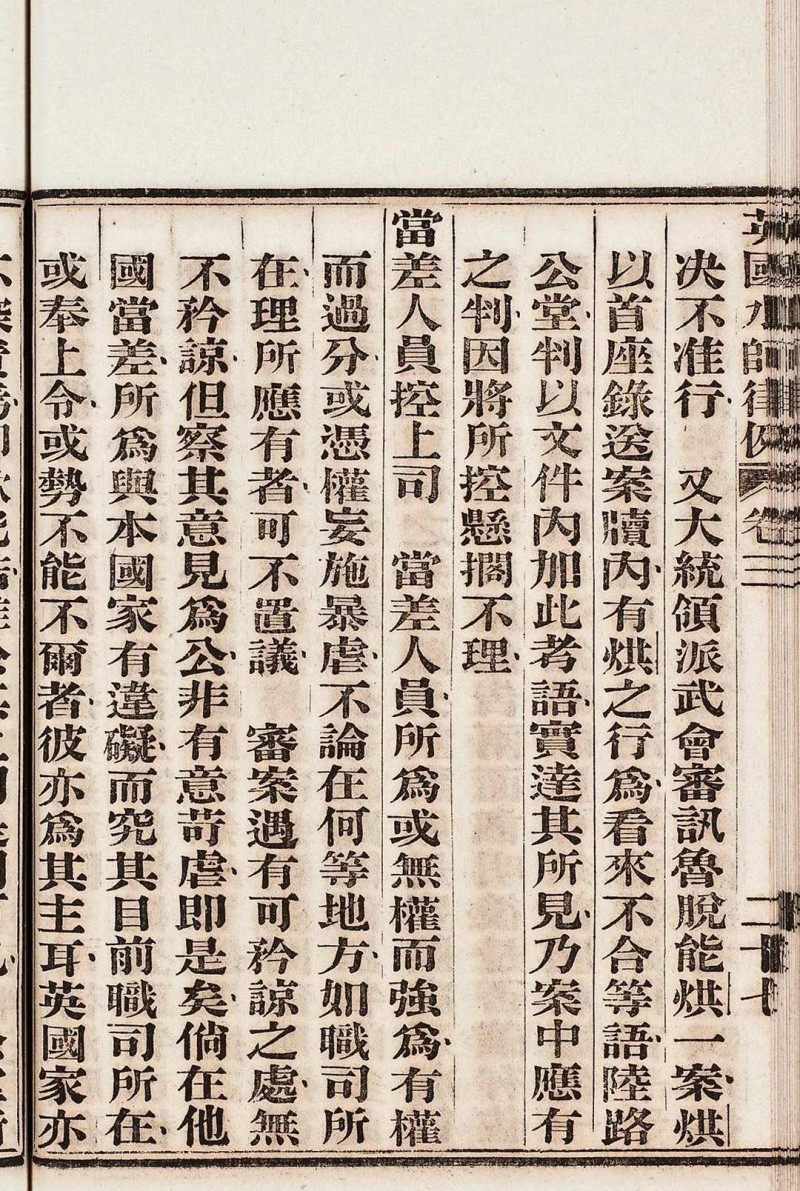 英國水師律例 卷三 二十七
决不准行 又大統領派武會審訊魯脫能烘一案烘
以首座錄送案牘內有烘之行爲看來不合等語陸路
公堂判以文件內加此考語實達其所見乃案中應有
之判因將所控懸擱不理
當差人員控上司 當差人員所爲或無權而強爲有權
而過分或憑權妄施暴虐不論在何等地方如職司所
在理所應有者可不置議 審案遇有可矜諒之處無
不矜諒但察其意見爲公非有意苛虐即是矣倘在他
國當差所爲與本國家有違礙而究其目前職司所在
或奉上令或勢不能不爾者彼亦爲其主耳英國家亦